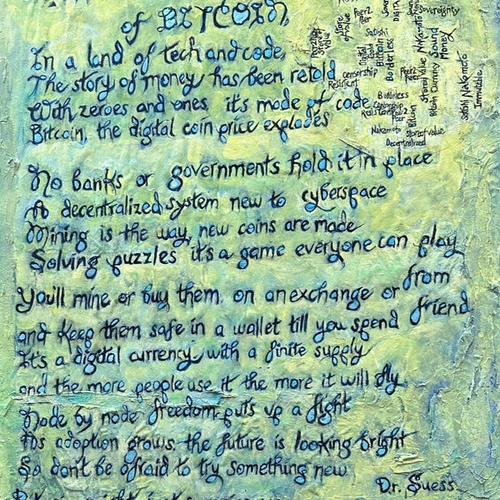 of BITCOIN
In a land of tech and code,
The story of money has been retold
With zeroes and ones, it's made of code
Bitcoin, the digital coin price explodes
No banks or governments hold it in place
A decentralized system new to cyberspace
Mining is the way, new coins are made
Solving puzzles it's a game everyone can play
You'll mine or buy them, on an exchange or from friend
and keep them safe in a wallet till you spend
It's a digital currency with a finite supply
and the more people use it the more it will fly
Node by node freedom puts up a fight
As adoption grows, the future is looking bright
So don't be afraid to try something new
Dr. Suess
Sovereignty
Satoshi
Borderless
Censorship
Resilient
Sound Money
Satoshi Nakamoto
Immutable
Nakamoto
Store of value
Decentralized